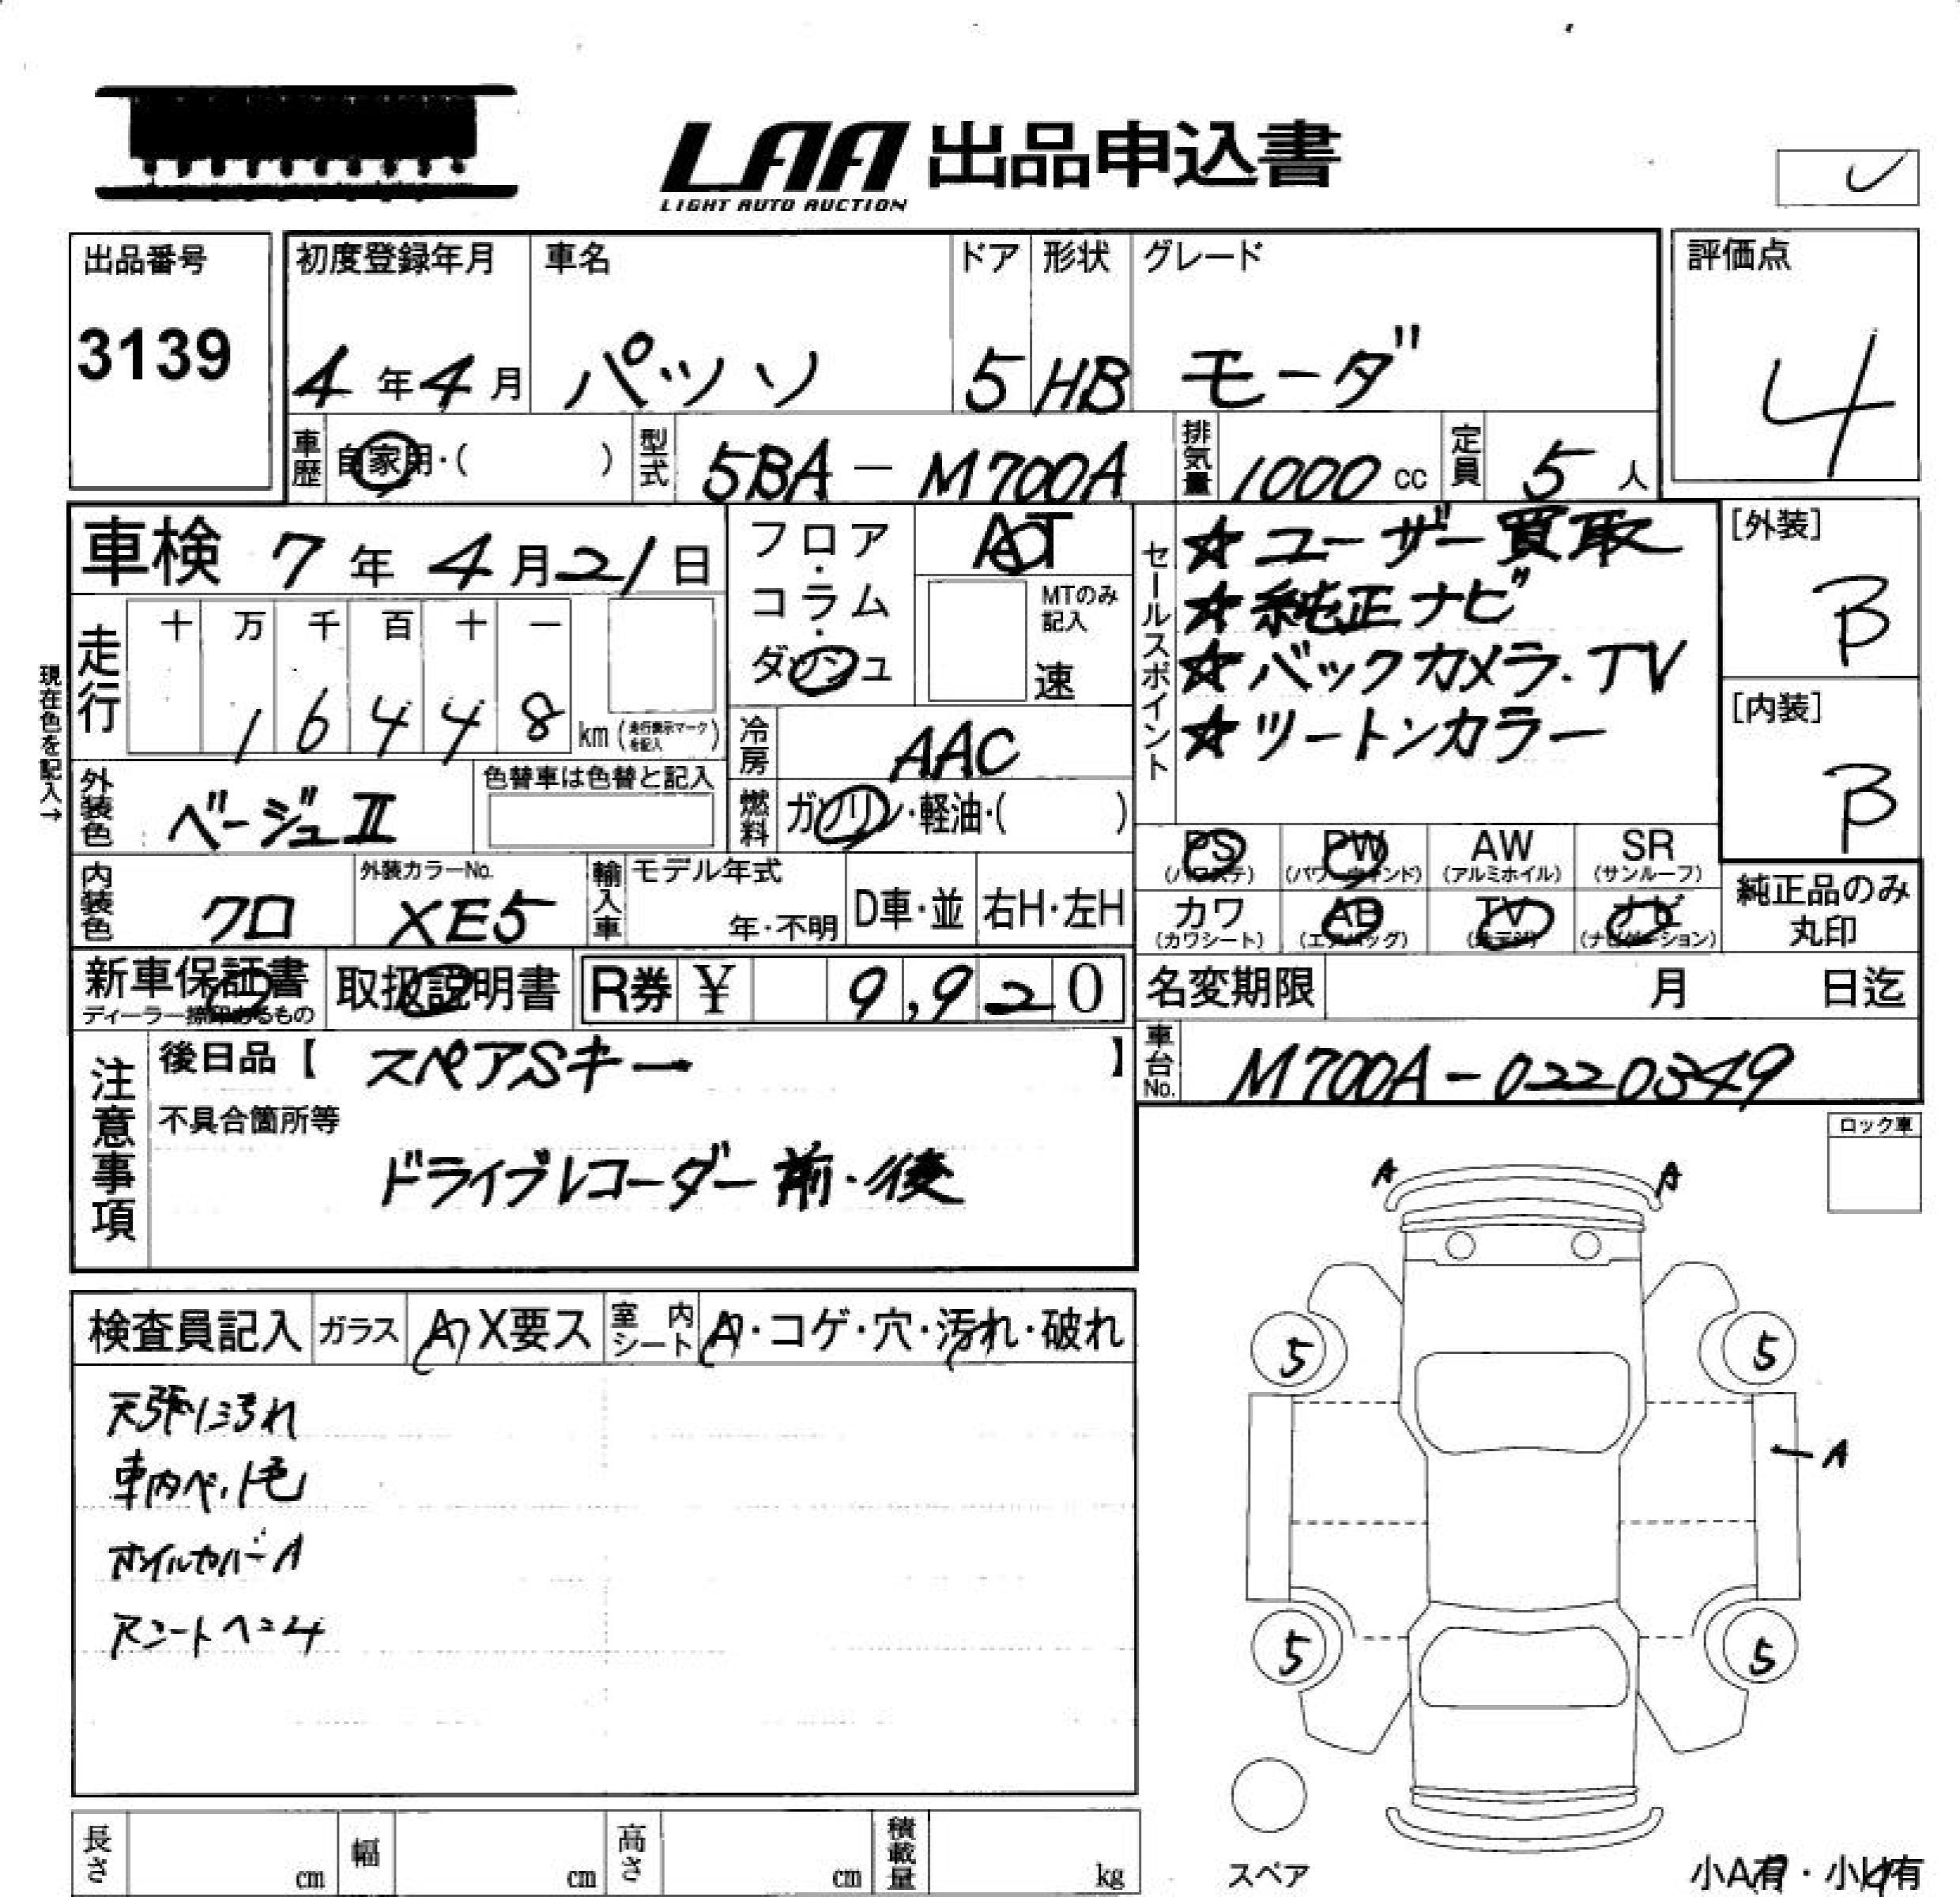 LAA 出品申込書
LIGHT AUTO AUCTION
出品番号
3139
初度登録年月
4年4月
車名
パッソ
ドア
5
形状
HB
グレード
モーダ
評価点
4
車歴
自家用・( )
型式
5BA-M700A
排気量
1000cc
定員
5人
車検 7年4月21日
フロア・コラム・ダッシュ
AT
MTのみ記入
速
セールスポイント
☆ユーザー買取
☆純正ナビ
☆バックカメラ.TV
☆ツートンカラー
[外装]
B
[内装]
B
現在色を記入→
走行
十 万 千 百 十 一
1 6 4 4 8 km (走行表示マークを記入)
冷房
AAC
外装色
ベージュII
色替車は色替と記入
燃料
ガソリン・軽油・( )
PS
(パワステ)
PW
(パワーウィンド)
AW
(アルミホイル)
SR
(サンルーフ)
カワ
(カワシート)
AB
(エアバッグ)
TV
ナビ
(ナビゲーション)
純正品のみ
丸印
内装色
クロ
外装カラーNo.
XE5
輸入車
モデル年式
年・不明
D車・並
右H・左H
新車保証書
取扱説明書
R券 ¥ 9,920
名変期限 月 日迄
車台No.
M700A-0220349
注意事項
後日品【 スペアSキー 】
不具合箇所等
ドライブレコーダー前・後
ロック車
A A
検査員記入
ガラス
A X要ス
室内シート
A・コゲ・穴・汚れ・破れ
5 5
A
天張り汚れ
ホイルカバーA
5 5
スペア
長さ cm
幅 cm
高さ cm
積載量 kg
小A有・小U有